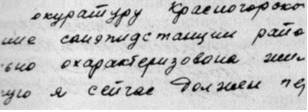 окуратуру Красногорско
ние санэпидстанции райо
ьно охарактеризована жи
ую я сейчас должен по